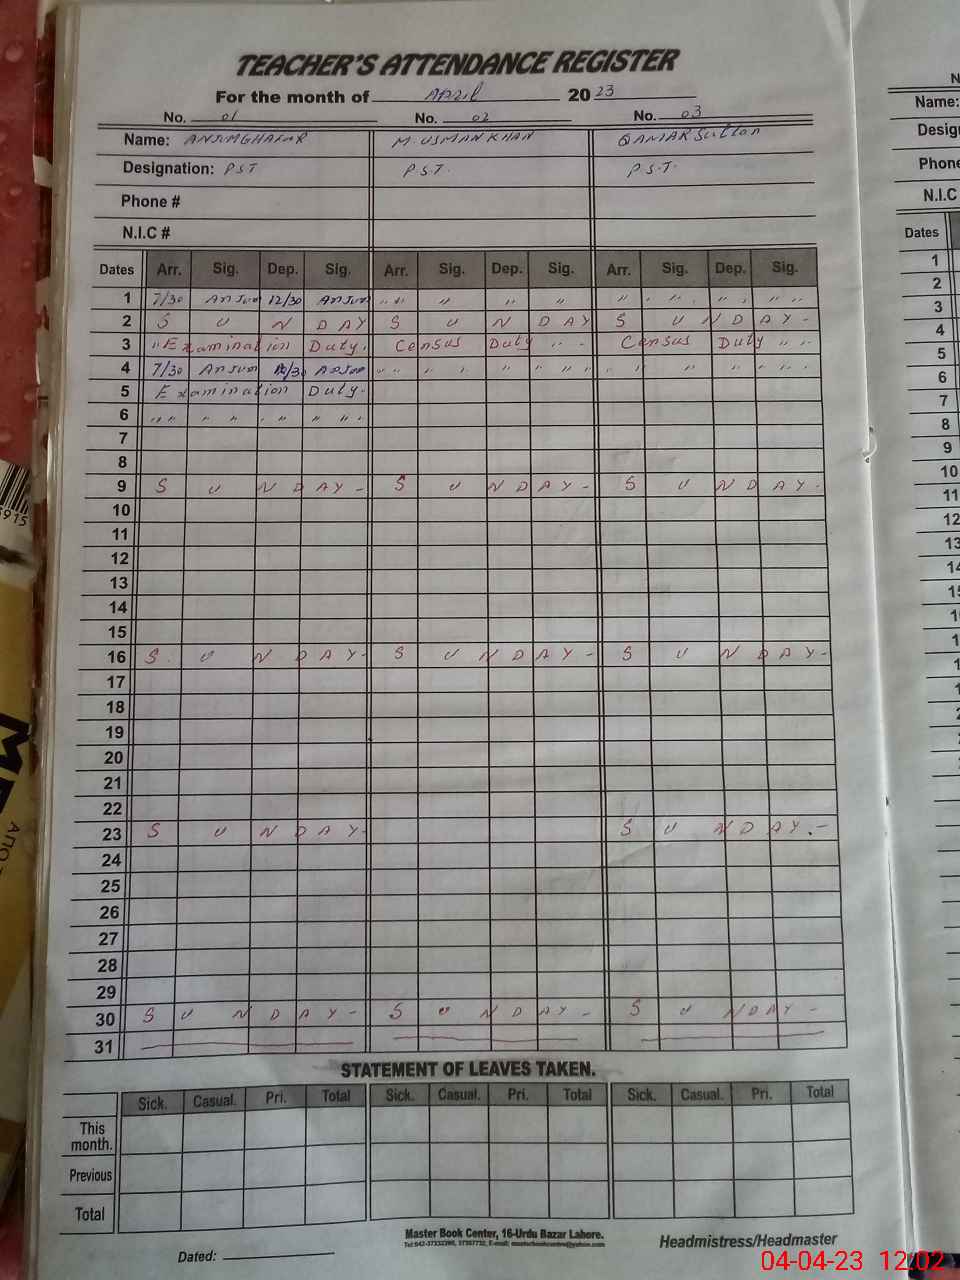 TEACHER'S ATTENDANCE REGISTER
For the month of April 2023
No. 01 No. 02 No. 03
Name: M. USMAN KHAN
Designation: PST P.S.T. P.S.T.
Phone #
N.I.C #
Dates Arr. Sig. Dep. Sig. Arr. Sig. Dep. Sig. Arr. Sig. Dep. Sig.
1 7/30 12/30 " " " " " " " " " "
2 S U N D A Y S U N D A Y S U N D A Y -
3 " Examination Duty. Census Duty " - Census Duty " "
4 7/30 " " " " " " " " " " " " "
5 Examination Duty.
6 " " " " " " " " "
7
8
9 S U N D A Y - S U N D A Y - S U N D A Y -
10
11
12
13
14
15
16 S U N D A Y - S U N D A Y - S U N D A Y -
17
18
19
20
21
22
23 S U N D A Y - S U N D A Y . -
24
25
26
27
28
29
30 S U N D A Y - S U N D A Y - S U N D A Y -
31
STATEMENT OF LEAVES TAKEN.
Sick. Casual. Pri. Total Sick. Casual. Pri. Total Sick. Casual. Pri. Total
This
month.
Previous
Total
Master Book Center, 16-Urdu Bazar Lahore.
Dated: Headmistress/Headmaster
04-04-23 12:02
N
Name:
Desig
Phone
N.I.C
Dates
1
2
3
4
5
6
7
8
9
10
11
12
13